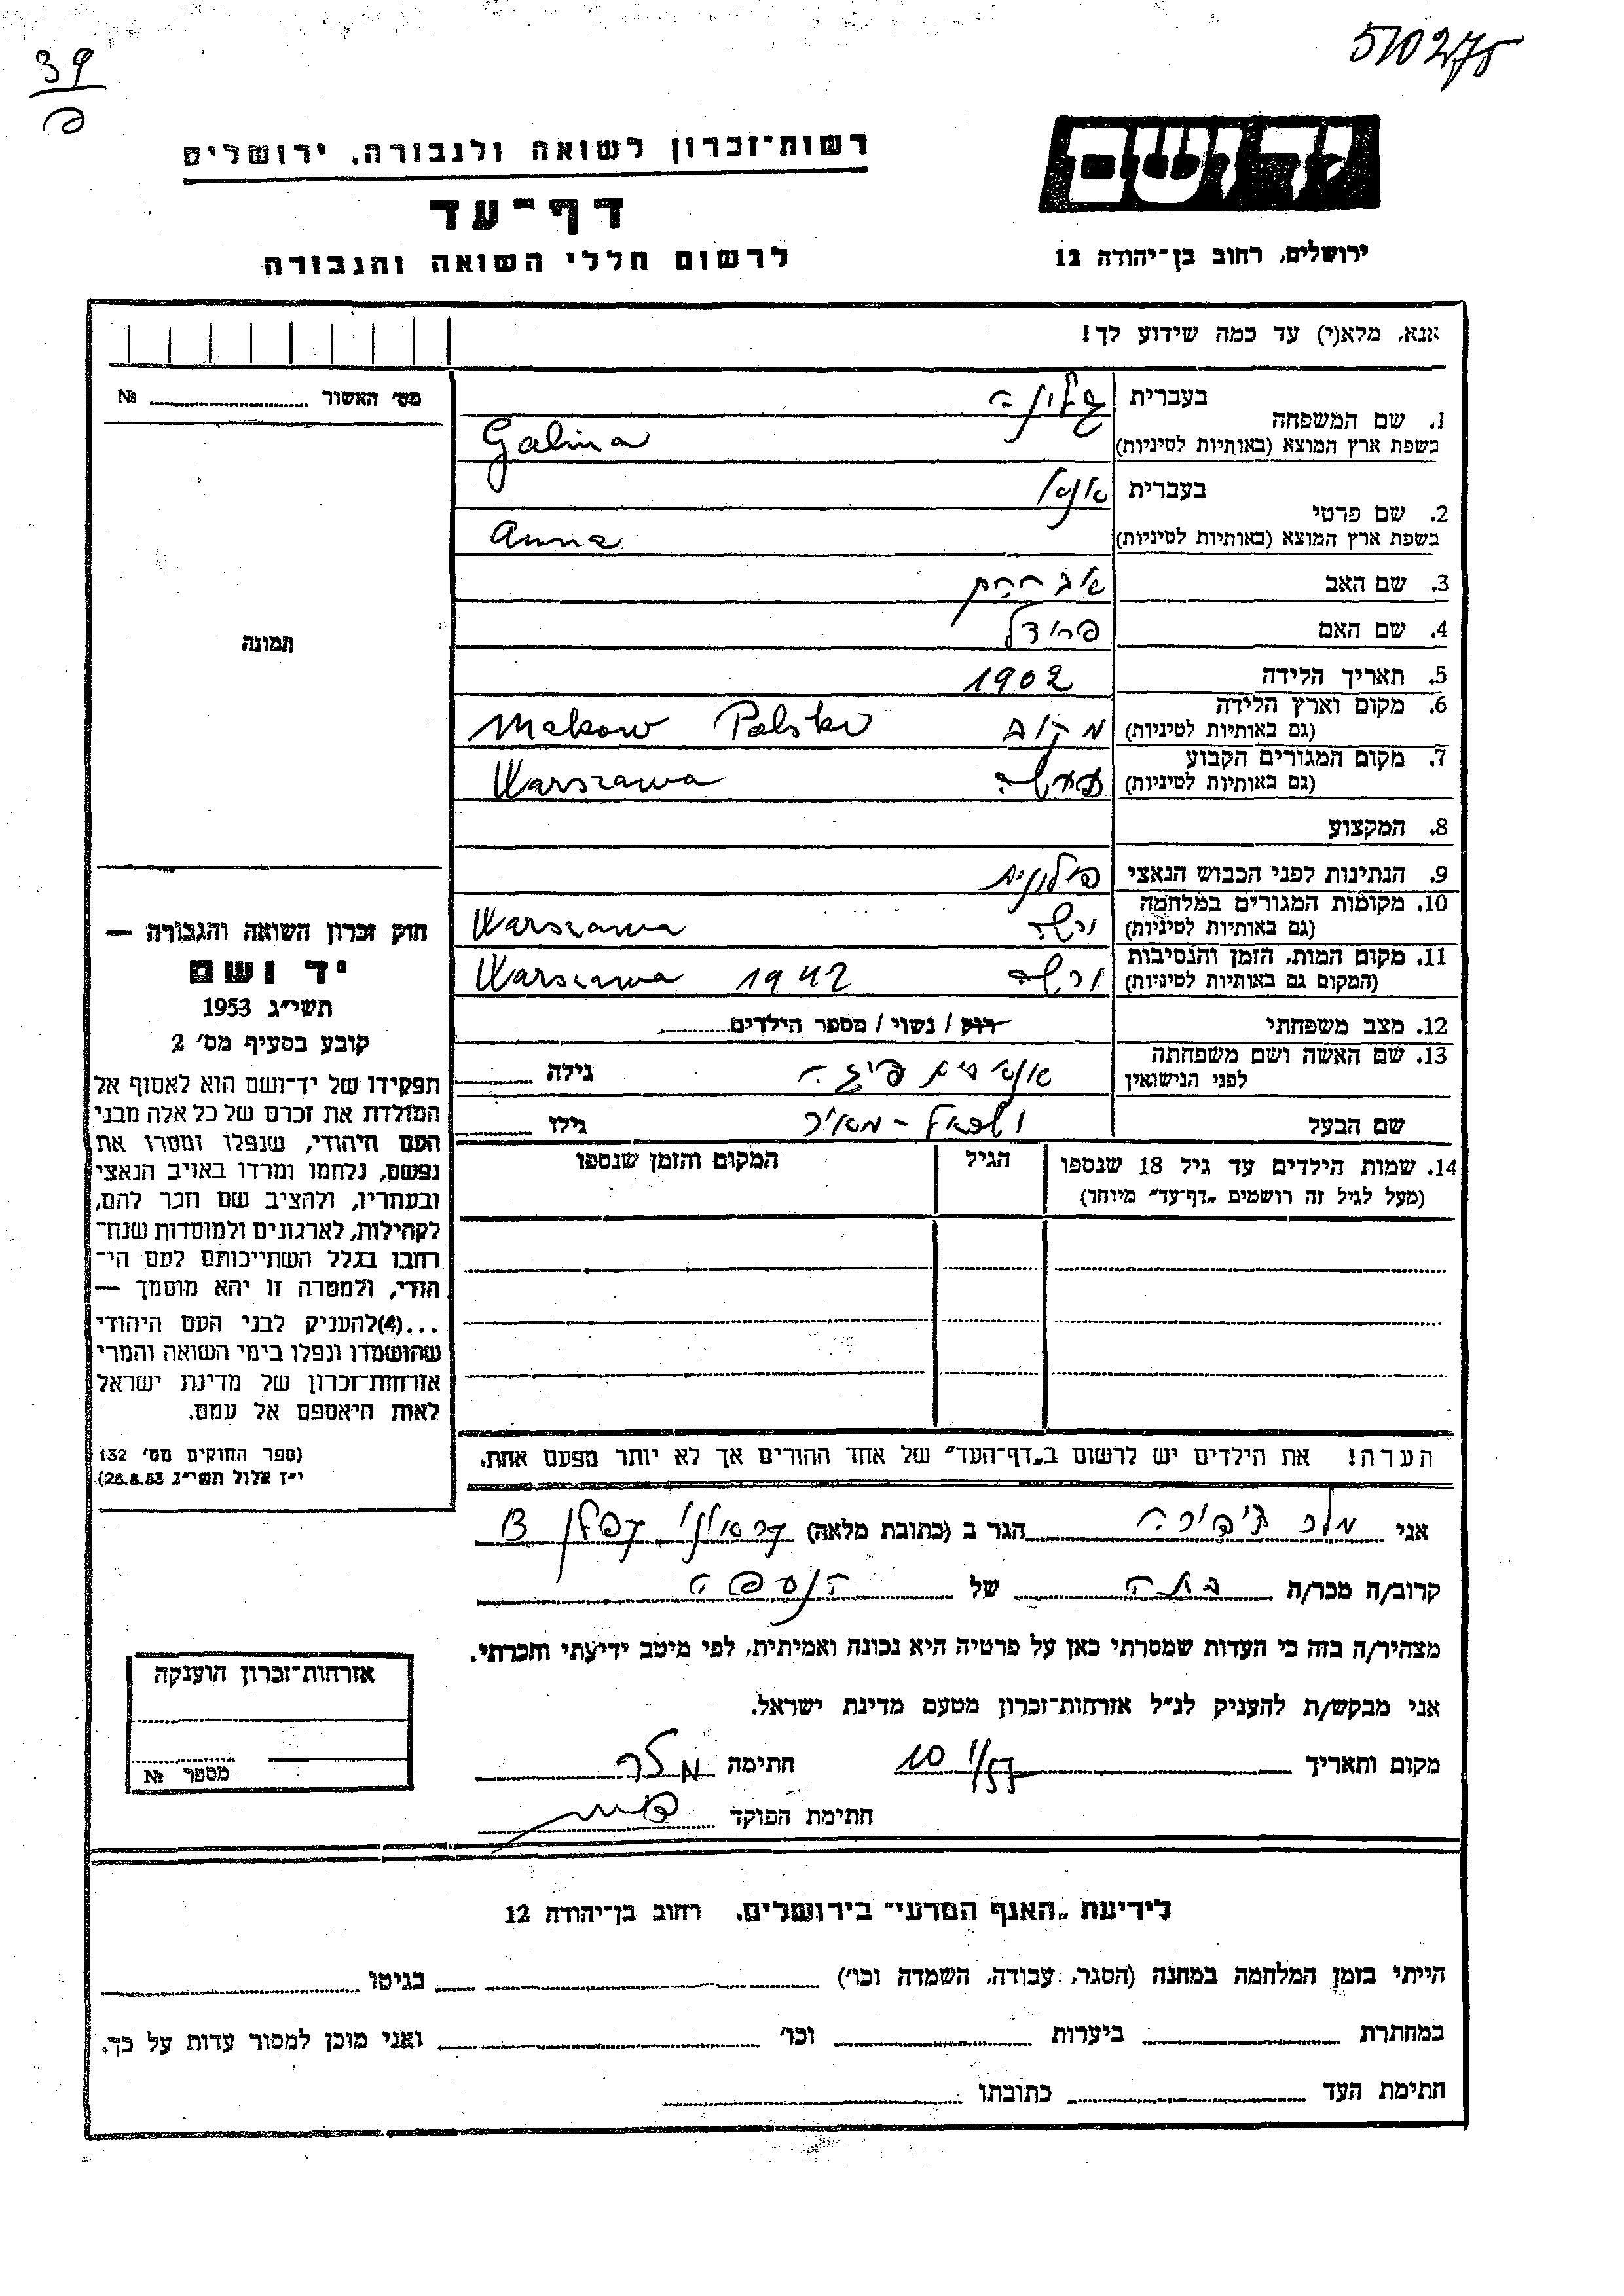 510275
39
רשות־זכרון לשואה ולגבורה, ירושלים
דף־עד
לרשום חללי השואה והגבורה
יד ושם
ירושלים, רחוב בן־יהודה 12
אנא, מלא(י) עד כמה שידוע לך!
מס' האשור № 
1. שם המשפחה בעברית גלינה
בשפת ארץ המוצא (באותיות לטיניות) Galina
2. שם פרטי בעברית אנה
בשפת ארץ המוצא (באותיות לטיניות) Anna
3. שם האב אברהם
4. שם האם פרידל
5. תאריך הלידה 1902
6. מקום וארץ הלידה (גם באותיות לטיניות) מקוב Makow Polska
7. מקום המגורים הקבוע (גם באותיות לטיניות) Warszawa
8. המקצוע
9. הנתינות לפני הכבוש הנאצי פולונית
10. מקומות המגורים במלחמה (גם באותיות לטיניות) ורשה Warszawa
11. מקום המות, הזמן והנסיבות (המקום גם באותיות לטיניות) ורשה Warszawa 1942
12. מצב משפחתי רוק / נשוי / מספר הילדים
13. שם האשה ושם משפחתה לפני הנישואין גילה
שם הבעל גילו
14. שמות הילדים עד גיל 18 שנספו
(מעל לגיל זה רושמים „דף־עד" מיוחד)
הגיל
המקום והזמן שנספו
תמונה
חוק זכרון השואה והגבורה —
יד ושם
תשי"ג 1953
קובע בסעיף מס' 2
תפקידו של יד־ושם הוא לאסוף אל
המולדת את זכרם של כל אלה מבני
העם היהודי, שנפלו ומסרו את
נפשם, נלחמו ומרדו באויב הנאצי
ובעוזריו, ולהציב שם וזכר להם,
לקהילות, לארגונים ולמוסדות שנח־
רבו בגלל השתייכותם לעם הי־
הודי, ולמטרה זו יהא מוסמך —
...(4)להעניק לבני העם היהודי
שהושמדו ונפלו בימי השואה והמרי
אזרחות־זכרון של מדינת ישראל
לאות היאספם אל עמם.
(ספר החוקים מס' 132
י"ז אלול תשי"ג 28.8.53)
הערה! את הילדים יש לרשום ב„דף־העד" של אחד ההורים אך לא יותר מפעם אחת.
אני מלר הגר ב (כתובת מלאה)
קרוב/ה מכר/ה בתה של הנספה
מצהיר/ה בזה כי העדות שמסרתי כאן על פרטיה היא נכונה ואמיתית, לפי מיטב ידיעתי והכרתי.
אני מבקש/ת להעניק לנ"ל אזרחות־זכרון מטעם מדינת ישראל.
מקום ותאריך 10 חתימה מלר
חתימת הפוקד
אזרחות־זכרון הוענקה
מספר №
לידיעת „האגף המדעי" בירושלים, רחוב בן־יהודה 12
הייתי בזמן המלחמה במחנה (הסגר, עבודה, השמדה וכו') בגיטו
במחתרת ביערות וכו' ואני מוכן למסור עדות על כך.
חתימת העד כתובתו